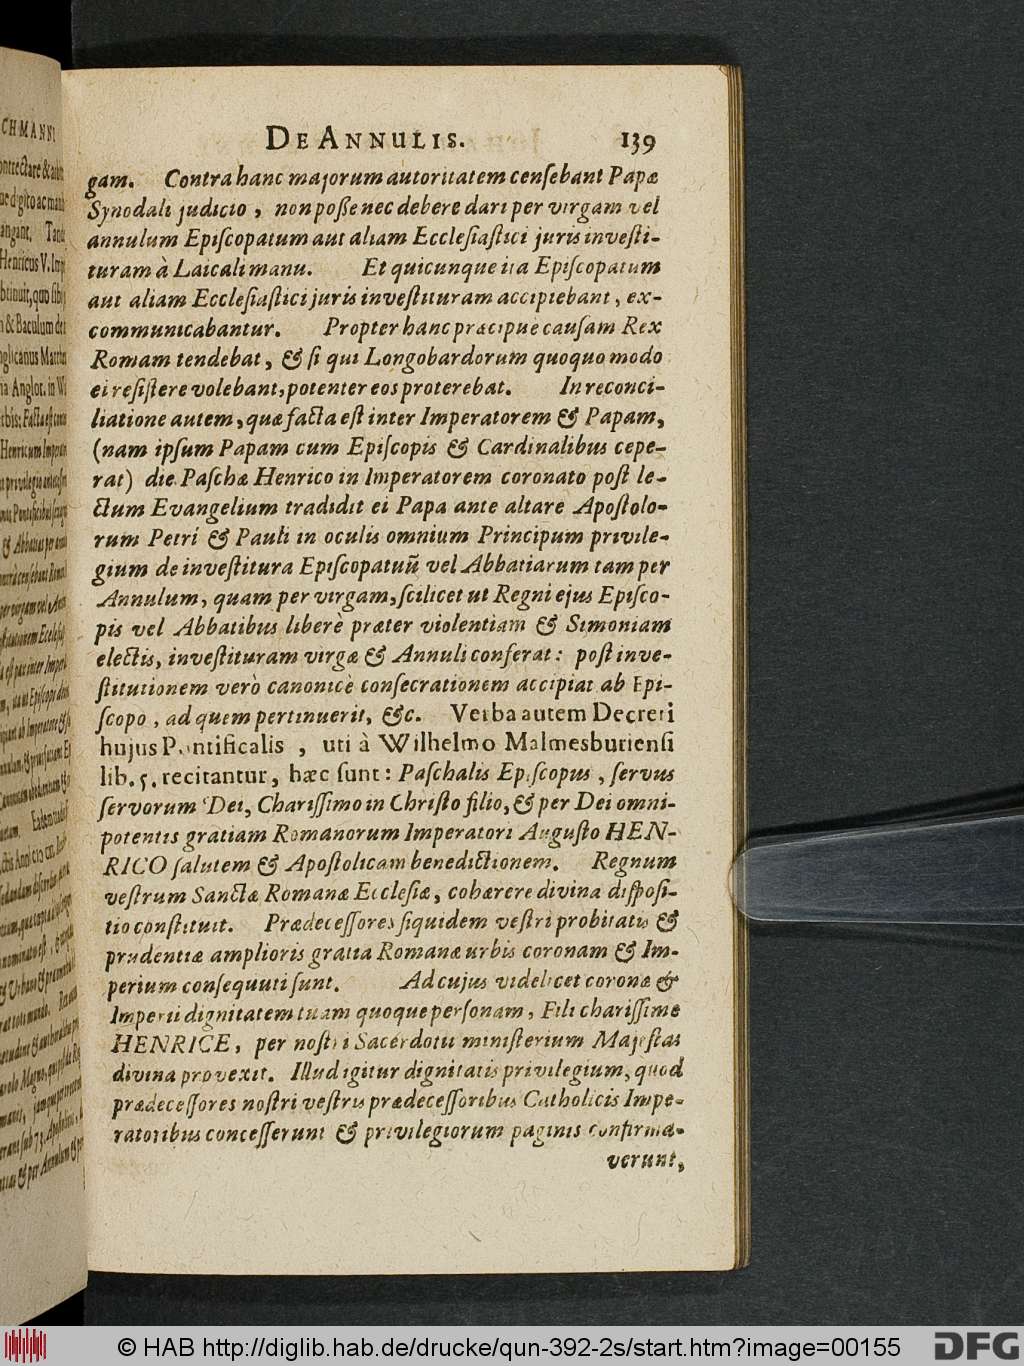 DE ANNULIS. 139
gam. Contra hanc majorum autoritatem censebant Papæ
Synodali judicio, non posse nec debere dari per virgam vel
annulum Episcopatum aut aliam Ecclesiastici juris investi-
turam à Laicali manu. Et quicunque ita Episcopatum
aut aliam Ecclesiastici juris investituram accipiebant, ex-
communicabantur. Propter hanc præcipuè causam Rex
Romam tendebat, & si qui Longobardorum quoquo modo
ei resistere volebant, potenter eos proterebat. In reconci-
liatione autem, quæ facta est inter Imperatorem & Papam,
(nam ipsum Papam cum Episcopis & Cardinalibus cepe-
rat) die Paschæ Henrico in Imperatorem coronato post le-
ctum Evangelium tradidit ei Papa ante altare Apostolo-
rum Petri & Pauli in oculis omnium Principum privile-
gium de investitura Episcopatuũ vel Abbatiarum tam per
Annulum, quam per virgam, scilicet ut Regni ejus Episco-
pis vel Abbatibus liberè præter violentiam & Simoniam
electis, investituram virgæ & Annuli conferat: post inve-
stitutionem verò canonicè consecrationem accipiat ab Epi-
scopo, ad quem pertinuerit, &c. Verba autem Decreti
hujus Pontificalis, uti à Wilhelmo Malmesburiensi
lib. 5. recitantur, hæc sunt: Paschalis Episcopus, servus
servorum Dei, Charissimo in Christo filio, & per Dei omni-
potentis gratiam Romanorum Imperatori Augusto HEN-
RICO salutem & Apostolicam benedictionem. Regnum
vestrum Sanctæ Romanæ Ecclesiæ, cohærere divina disposi-
tio constituit. Prædecessores siquidem vestri probitatis &
prudentiæ amplioris gratia Romanæ urbis coronam & Im-
perium consequuti sunt. Ad cujus videlicet coronæ &
Imperii dignitatem tuam quoque personam, Fili charissime
HENRICE, per nostri Sacerdotii ministerium Majestas
divina provexit. Illud igitur dignitatis privilegium, quod
prædecessores nostri vestris prædecessoribus Catholicis Impe-
ratoribus concesserunt & privilegiorum paginis confirma-
verunt,
© HAB http://diglib.hab.de/drucke/qun-392-2s/start.htm?image=00155
DFG